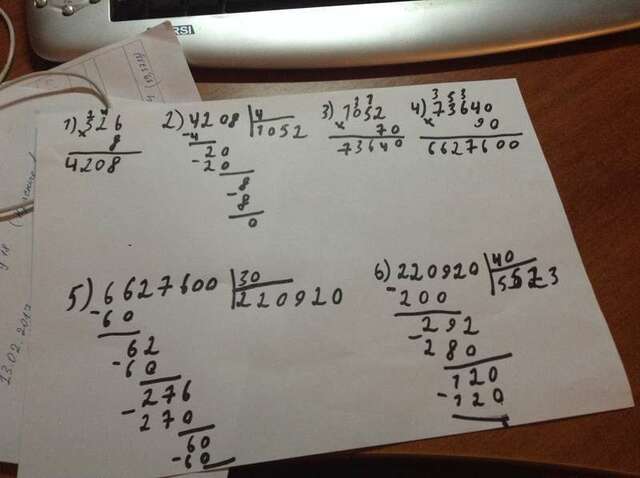 1) 326
× 8
4208
2) 4208 | 4
1052
- 4
20
- 20
8
- 8
0
3) 1052
× 70
73640
4) 73640
× 90
6627600
5) 6627600 | 30
220920
- 60
62
- 60
276
- 270
60
- 60
6) 220920 | 40
5523
- 200
292
- 280
120
- 120
13.02.2017